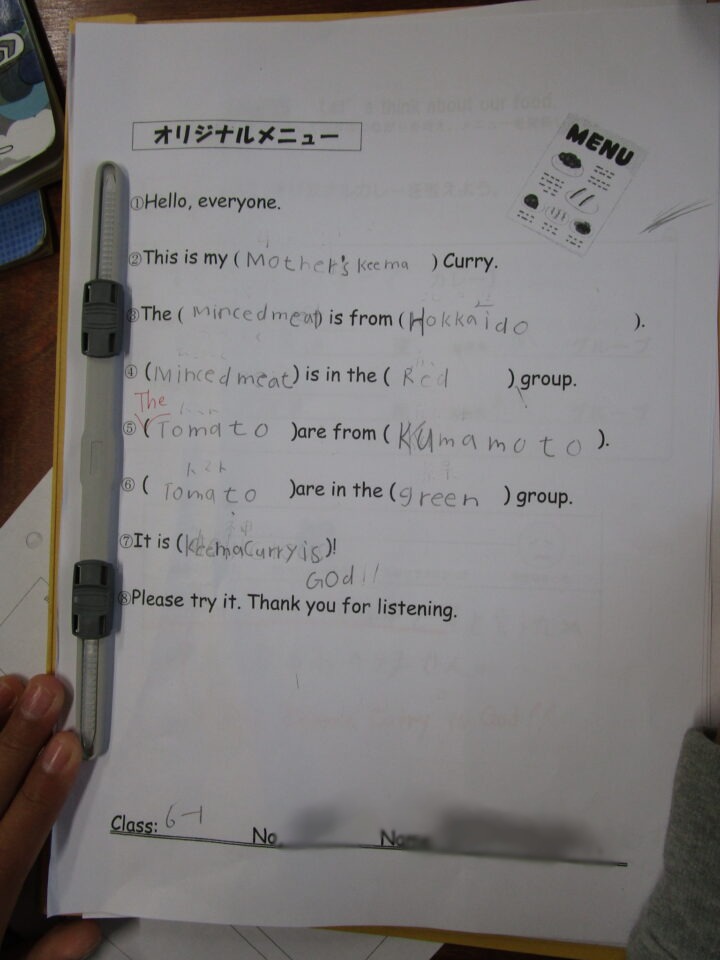 オリジナルメニュー
MENU
①Hello, everyone.
②This is my (Mother's Keema) Curry.
③The (Minced meat) is from (Hokkaido).
④ (Minced meat) is in the (Red) group.
The
⑤ (Tomato )are from (Kumamoto).
トマト
⑥ ( Tomato )are in the (green) group.
神
⑦It is (KeemaCurry is)!
GOd!!
⑧Please try it. Thank you for listening.
Class: 6-1 No. Name